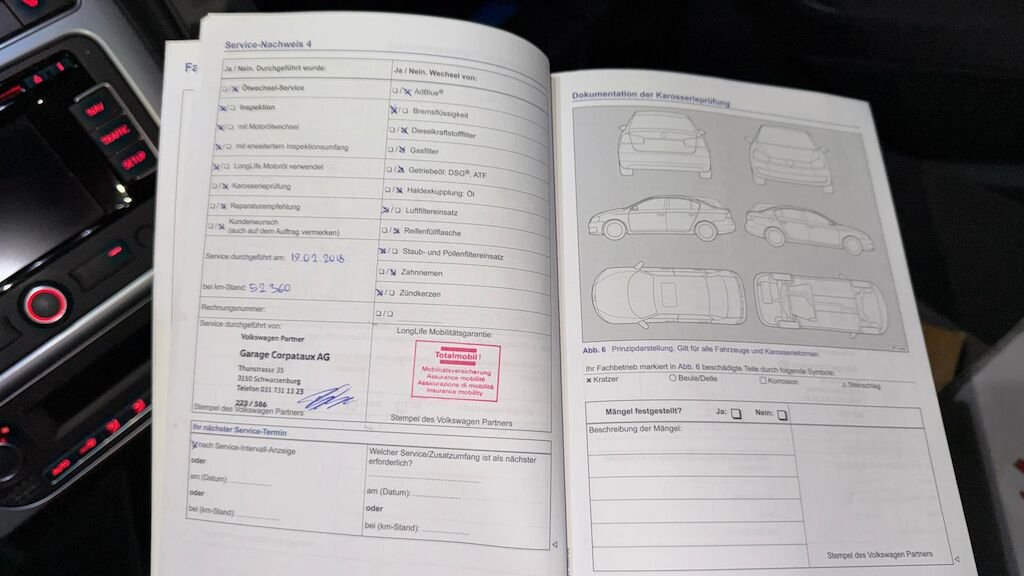 NAV
TRAFFIC
SETUP
AUTO
Service-Nachweis 4
Ja / Nein. Durchgeführt wurde:
Ölwechsel-Service
Inspektion
mit Motorölwechsel
mit erweitertem Inspektionsumfang
LongLife Motoröl verwendet
Karosserieprüfung
Reparaturempfehlung
Kundenwunsch
(auch auf dem Auftrag vermerken)
Service durchgeführt am: 19.02.2018
bei km-Stand: 52360
Rechnungsnummer:
Service durchgeführt von:
Volkswagen Partner
Garage Corpataux AG
Thunstrasse 35
3150 Schwarzenburg
Telefon 031 731 13 23
223 / 586
Stempel des Volkswagen Partners
Ja / Nein. Wechsel von:
AdBlue®
Bremsflüssigkeit
Dieselkraftstofffilter
Gasfilter
Getriebeöl: DSG®, ATF
Haldexkupplung: Öl
Luftfiltereinsatz
Reifenfüllflasche
Staub- und Pollenfiltereinsatz
Zahnriemen
Zündkerzen
LongLife Mobilitätsgarantie:
Totalmobil!
Mobilitätsversicherung
Assurance mobilité
Assicurazione di mobilità
Insurance mobility
Stempel des Volkswagen Partners
Ihr nächster Service-Termin
nach Service-Intervall-Anzeige
oder
am (Datum):
oder
bei (km-Stand):
Welcher Service/Zusatzumfang ist als nächster
erforderlich?
am (Datum):
oder
bei (km-Stand):
Dokumentation der Karosserieprüfung
Abb. 6 Prinzipdarstellung. Gilt für alle Fahrzeuge und Karosserieformen.
Ihr Fachbetrieb markiert in Abb. 6 beschädigte Teile durch folgende Symbole:
x Kratzer
○ Beule/Delle
□ Korrosion
△ Steinschlag
Mängel festgestellt? Ja: Nein:
Beschreibung der Mängel:
Stempel des Volkswagen Partners